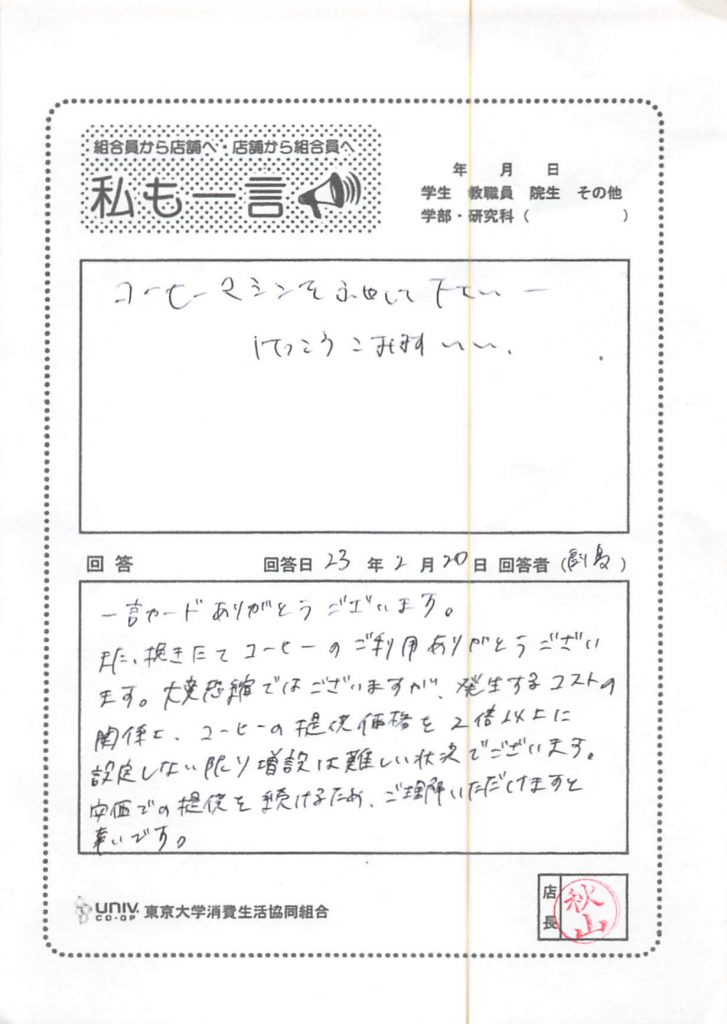 組合員から店舗へ・店舗から組合員へ
私も一言
年 月 日
学生 教職員 院生 その他
学部・研究科( )
コーヒーマシンをふやして下さいー
けっこうこみますいい、
回答 回答日 23年2月20日 回答者(副島)
一言カードありがとうございます。
また、挽きたてコーヒーのご利用ありがとうござい
ます。大変恐縮ではございますが、発生するコストの
関係上、コーヒーの提供価格を2倍以上に
設定しない限り増設は難しい状況でございます。
安価での提供を続けるため、ご理解いただけますと
幸いです。
UNIV. CO-OP 東京大学消費生活協同組合
店長 秋山